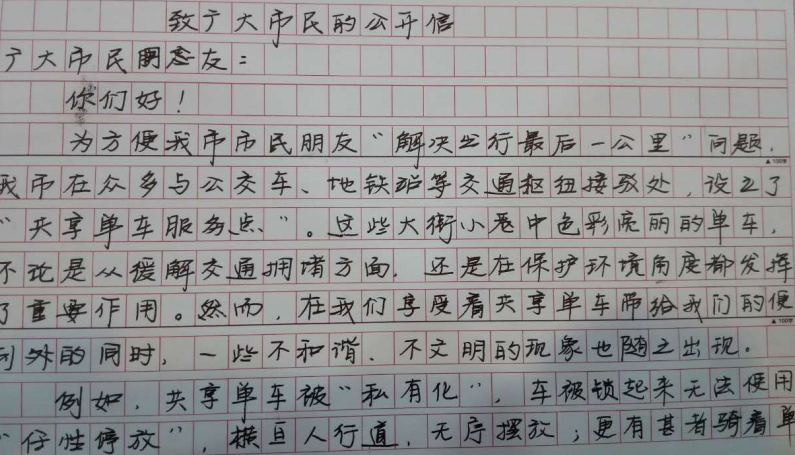 致广大市民的公开信
广大市民朋友：
你们好！
为方便我市市民朋友“解决出行最后一公里”问题，
我市在众多与公交车、地铁站等交通枢纽接驳处，设立了
“共享单车服务点”。这些大街小巷中色彩亮丽的单车，
不论是从缓解交通拥堵方面，还是在保护环境角度都发挥
了重要作用。然而，在我们享受着共享单车带给我们的便
利外的同时，一些不和谐、不文明的现象也随之出现。
例如，共享单车被“私有化”，车被锁起来无法使用
“任性停放”，横亘人行道，无序摆放；更有甚者骑着单
▲100字
▲700字